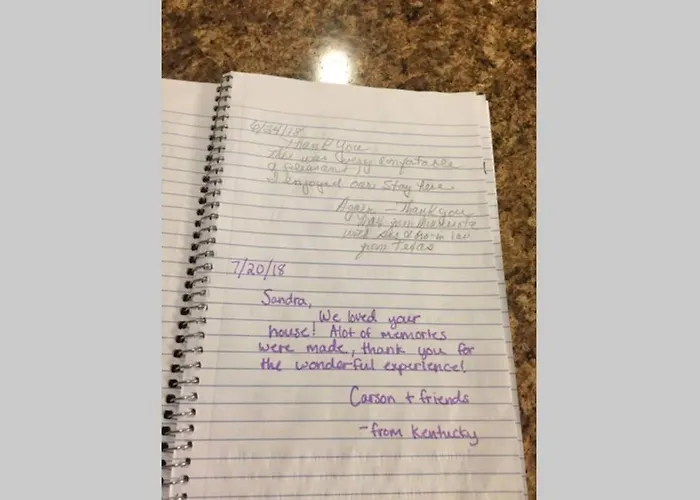 6/24/18
Thank you
This was very comfortable
& pleasant
I enjoyed our stay here
Again - Thank you
from Minnesota
from Texas
7/20/18
Sandra,
We loved your
house! Alot of memories
were made, thank you for
the wonderful experience!
Carson + friends
-from Kentucky